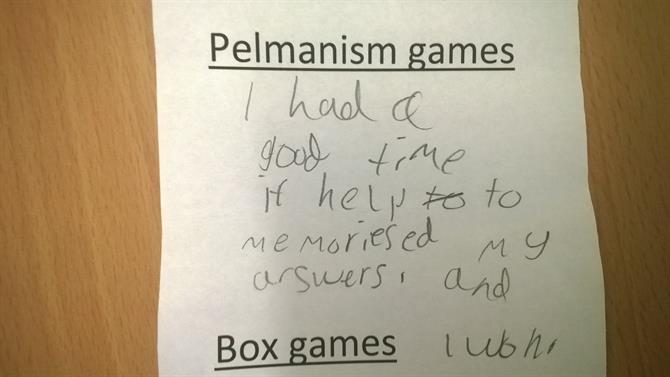 Pelmanism games
I had a
good time
it help to to
memoriesed my
answers, and
Box games I